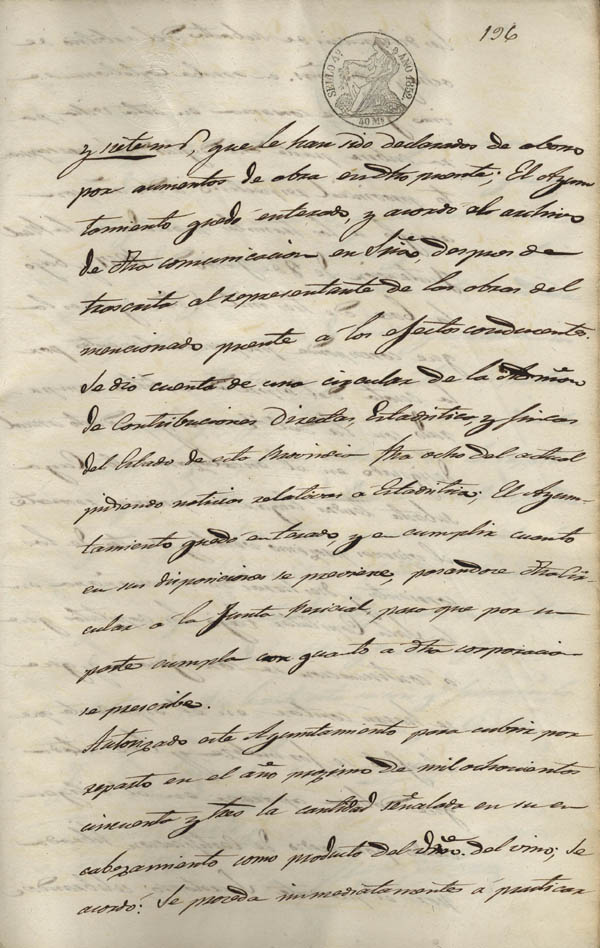 196
SELLO 4º AÑO 1852.
40 Ms
y siete mrs, que le han sido declarados de abono
por aumentos de obra en dho puente; El Ayun-
tamiento quedó enterado, y acordó el archivo
de dha comunicacion en Sria despues de
trascrita al representante de las obras del
mencionado puente á los efectos conducentes.
Se dió cuenta de una circular de la Admon
de Contribuciones Directas, Estadistica, y fincas
del Estado de esta Provincia fha ocho del actual
pidiendo noticias relativas á Estadistica; El Ayun-
tamiento quedó enterado, y en cumplir cuanto
en sus disposiciones se previene, pasandose dha Cir-
cular a la Junta Pericial, para que por su
parte cumpla con cuanto a dha corporacion
se prescribe.
Autorizado este Ayuntamiento para cubrir por
reparto en el año proximo de mil ochocientos
cincuenta y tres la cantidad señalada en su en
cabezamiento como producto del dro. del vino; Se
acordó: Se proceda inmediatamente á practicar